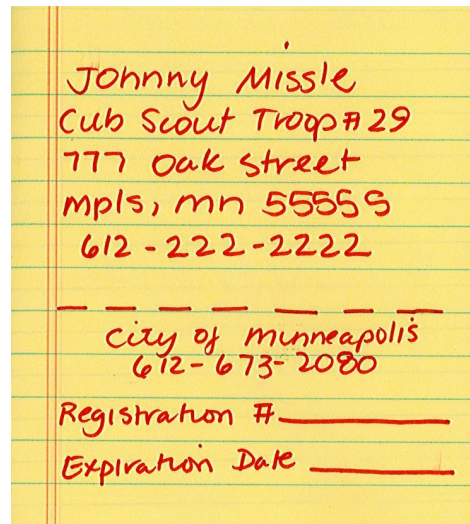 Johnny Missle
Cub Scout Troop # 29
777 Oak Street
mpls, mn 55555
612-222-2222
City of Minneapolis
612-673-2080
Registration # ________
Expiration Date ________